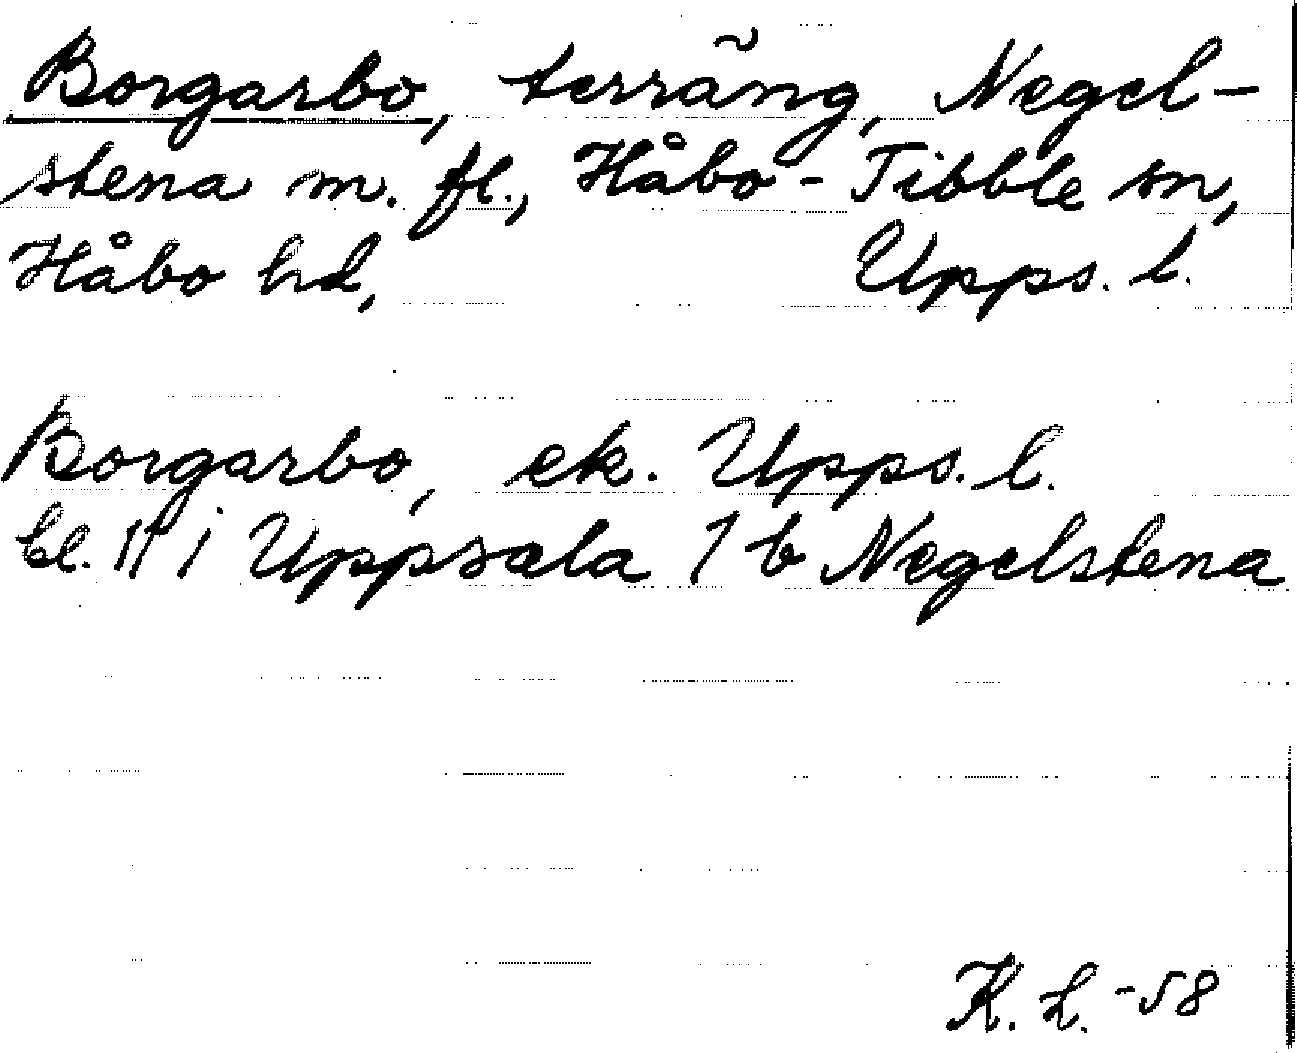 Borgarbo, terräng, Negel-
stena m. fl., Håbo-Tibble sn,
Håbo hd, Upps. l.
Borgarbo, ek. Upps. l.
bl. 11 i Uppsala 7 b Negelstena
K. L. -58